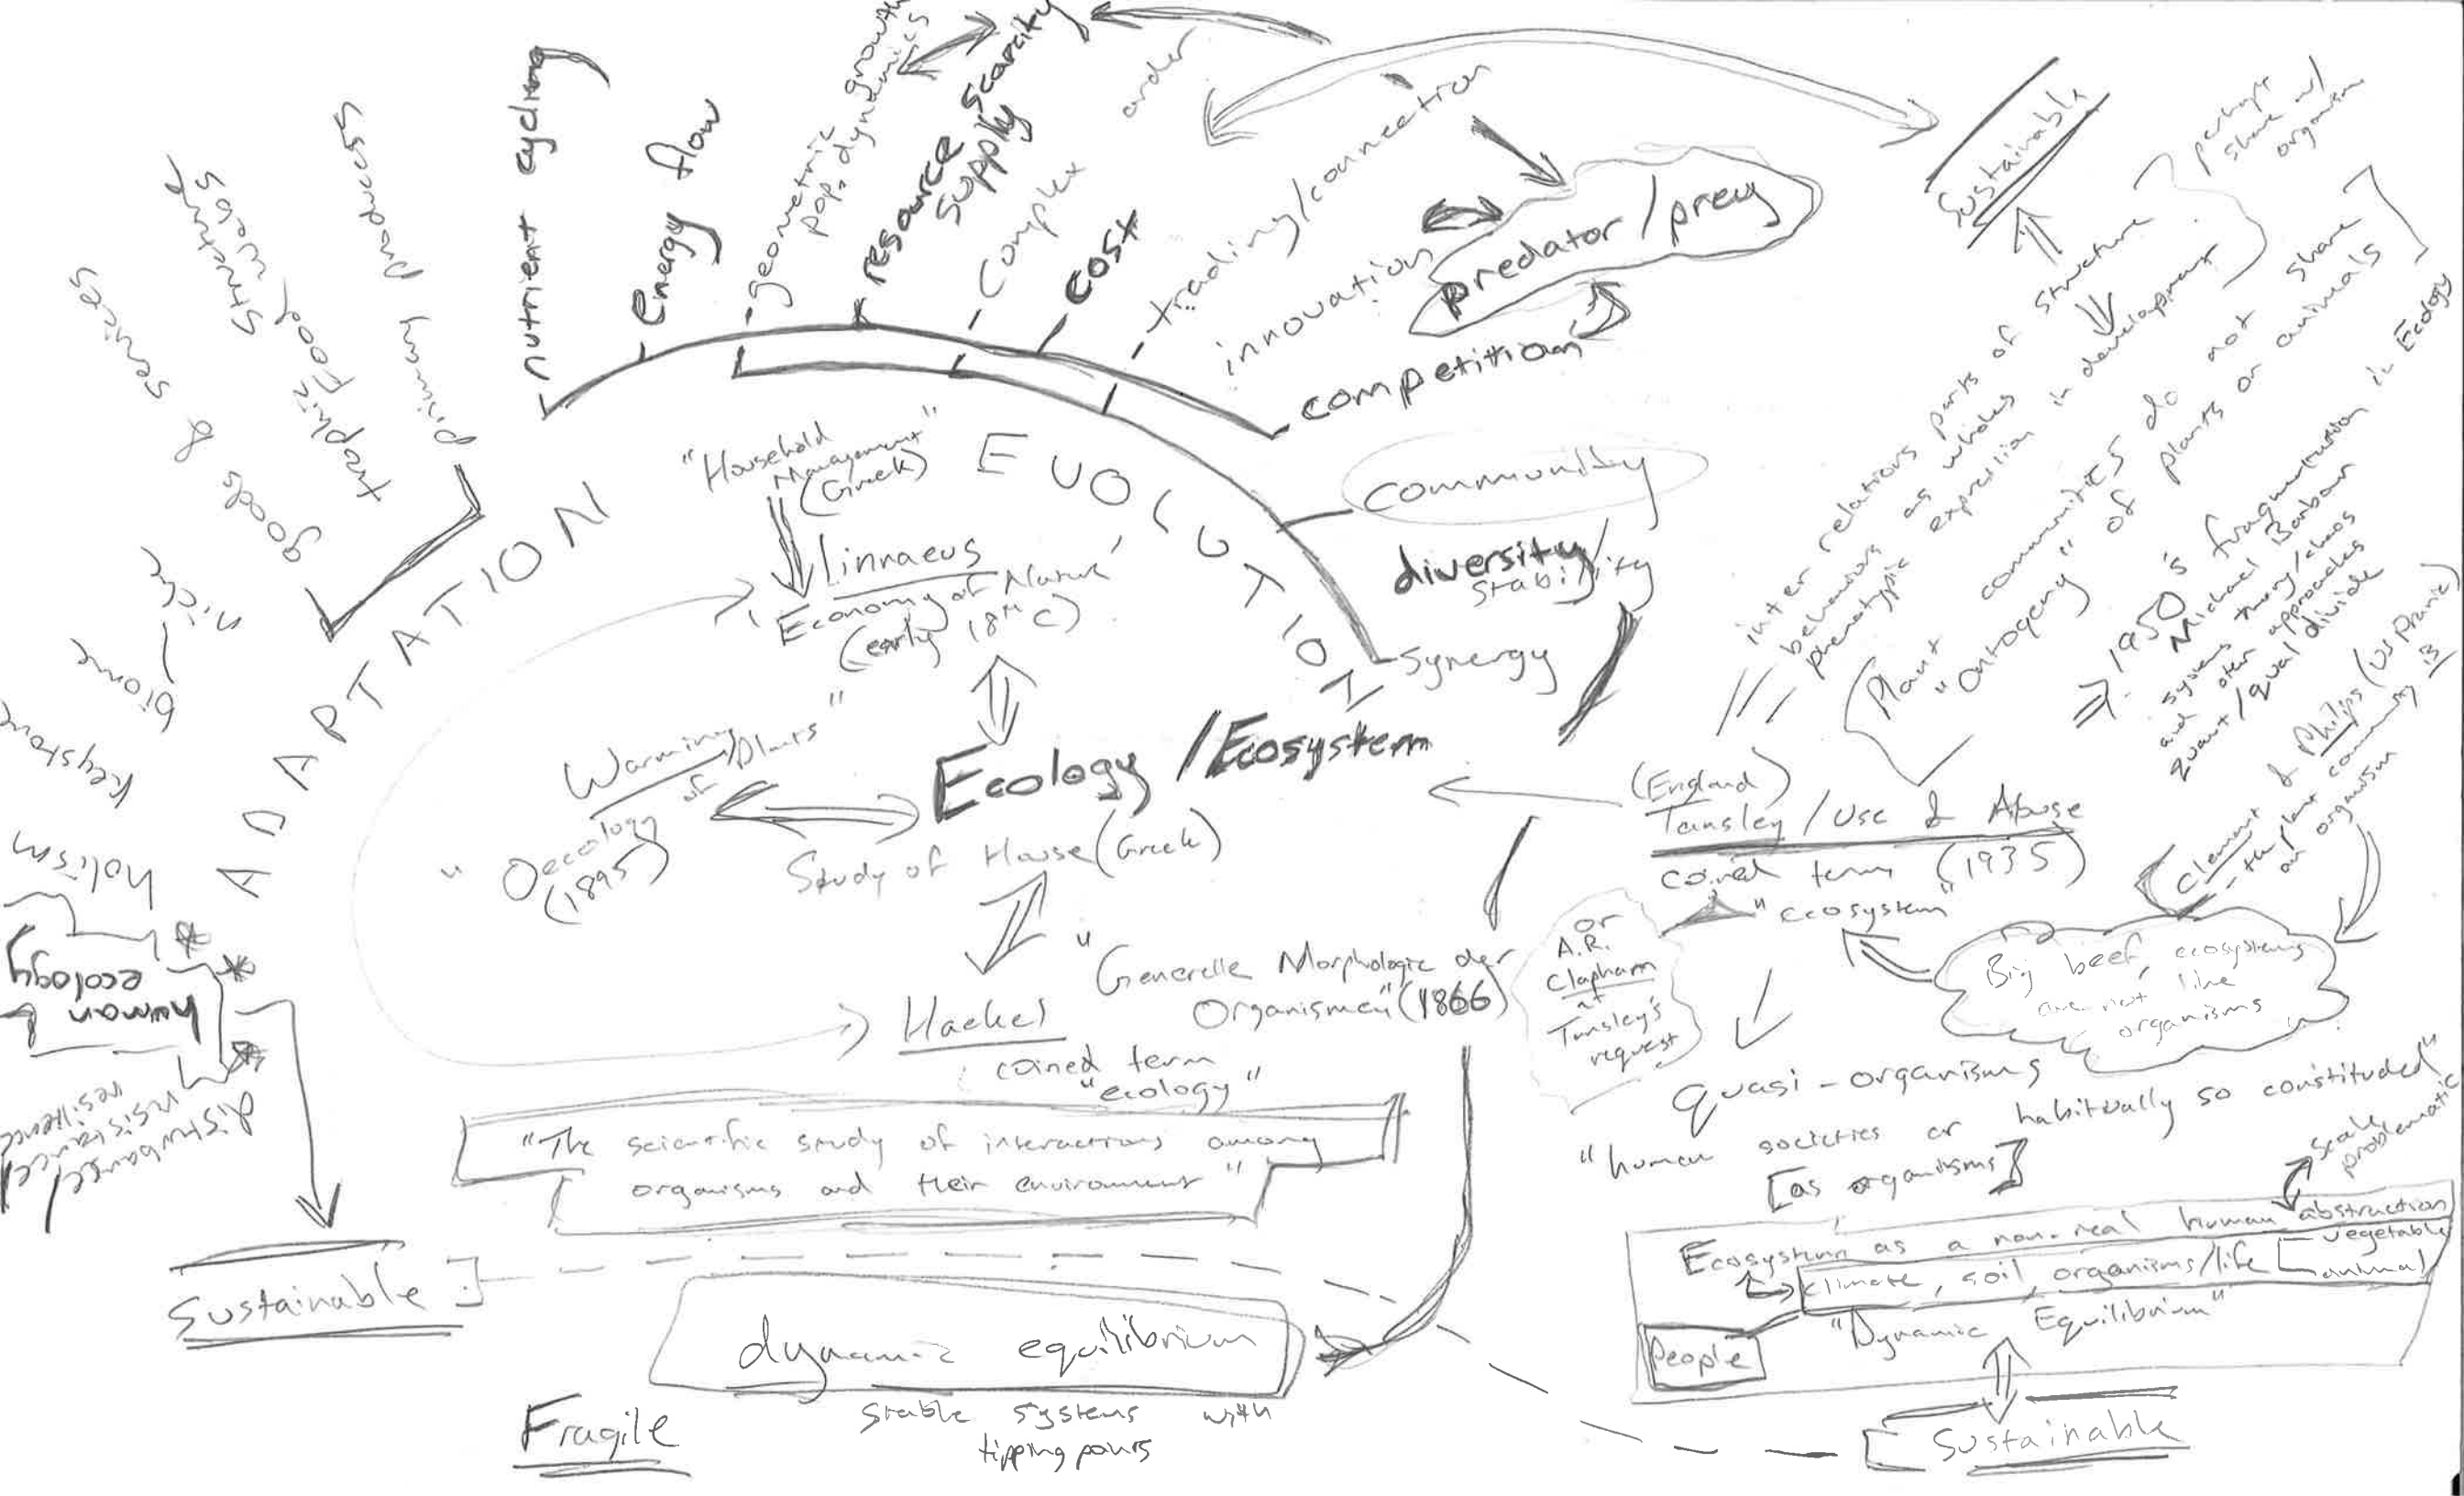 nutrient cycling
Energy flow
geometric growth
pop. dynamics
resource scarcity
supply
complex order
cost
trading/connection
innovation
predator/prey
competition
community
diversity/
stability
synergy
primary produces
food webs
trophic structure
goods & services
niche
biome
keystone
holism
human
ecology
disturbance/
resistance/
resilience
ADAPTATION
EVOLUTION
"Household
Management"
(Greek)
Linnaeus
'Economy of Nature'
(early 18th C)
Warming
"Oecology of Plants"
(1895)
Ecology / Ecosystem
Study of House (Greek)
Haekel
coined term
"ecology"
"Generelle Morphologie der
Organismen" (1866)
"The scientific study of interactions among
organisms and their environment"
Sustainable
dynamic equilibrium
stable systems with
tipping points
Fragile
Sustainable
perhaps
share w/
organism
inter relations parts of structure
behaviors as wholes
phenotypic expression in development
Plant communities do not share
"ontogeny" of plants or animals
1950's fragmentation in Ecology
Michael Barbour
systems theory/chaos
and other approaches
quant/qual divide
Clement & Philips (US Prairie)
- the plant community is
an organism
(England)
Tansley / Use & Abuse
coined term (1935)
"ecosystem"
or
A.R.
Clapham
at
Tansley's
request
Big beef, ecosystems
are not like
organisms
quasi-organisms
"human societies are habitually so constituted"
[as organisms]
scale
problematic
Ecosystem as a non-real human abstraction
climate, soil, organisms/life
vegetable
animal
People
"Dynamic Equilibrium"
Sustainable